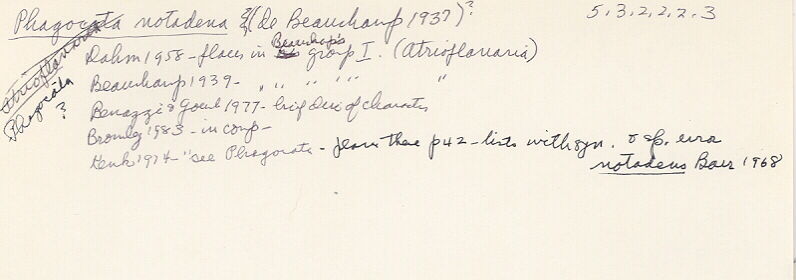 Phagocata notadena ? (de Beauchamp 1937)? 5.3.2.2.2.3
Atrioplanaria
Phagocata
?
Dahm 1958 - places in Beauchamp's group I. (Atrioplanaria)
Beauchamp 1939 - " " " " "
Benazzi & Gourb 1977 - brief disc of characters
Bromley 1983 - in comp -
Kenk 1974 - "see Phagocata - places there p42 - lists with syn. & sp. erra
notadens Baer 1968